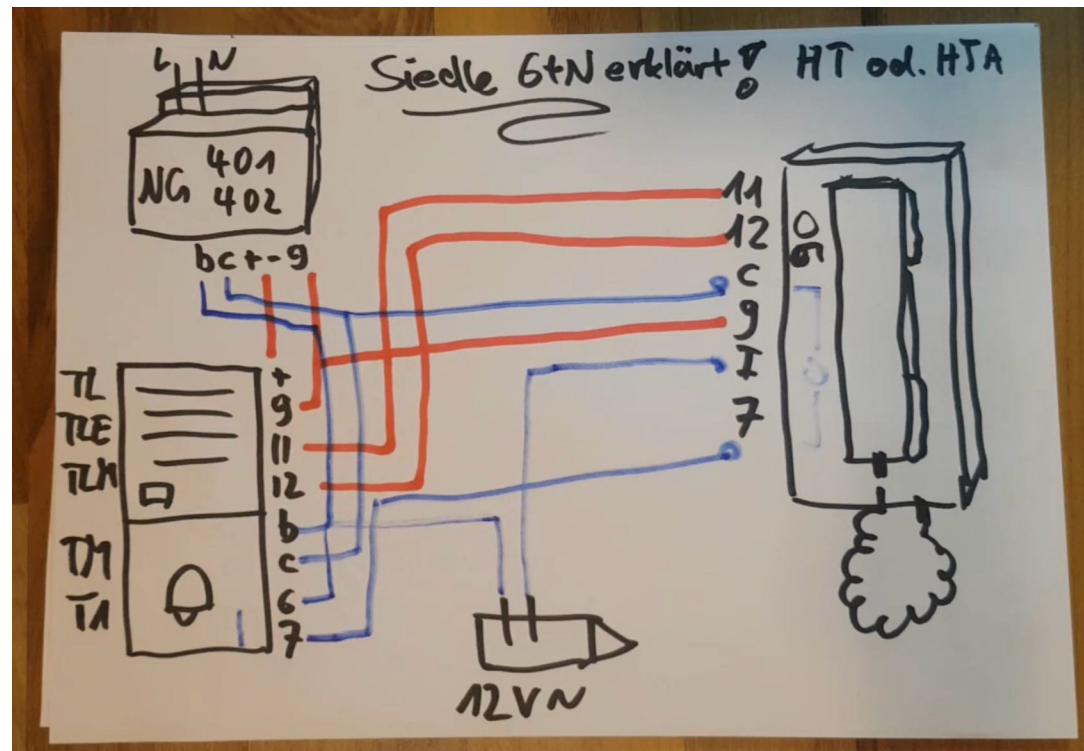 L N
Siedle 6+N erklärt! HT od. HTA
NG 401
402
b c + - 9
11
12
c
9
I
7
TL
TLE
TLM
TM
TA
+
9
11
12
b
c
6
7
12V~